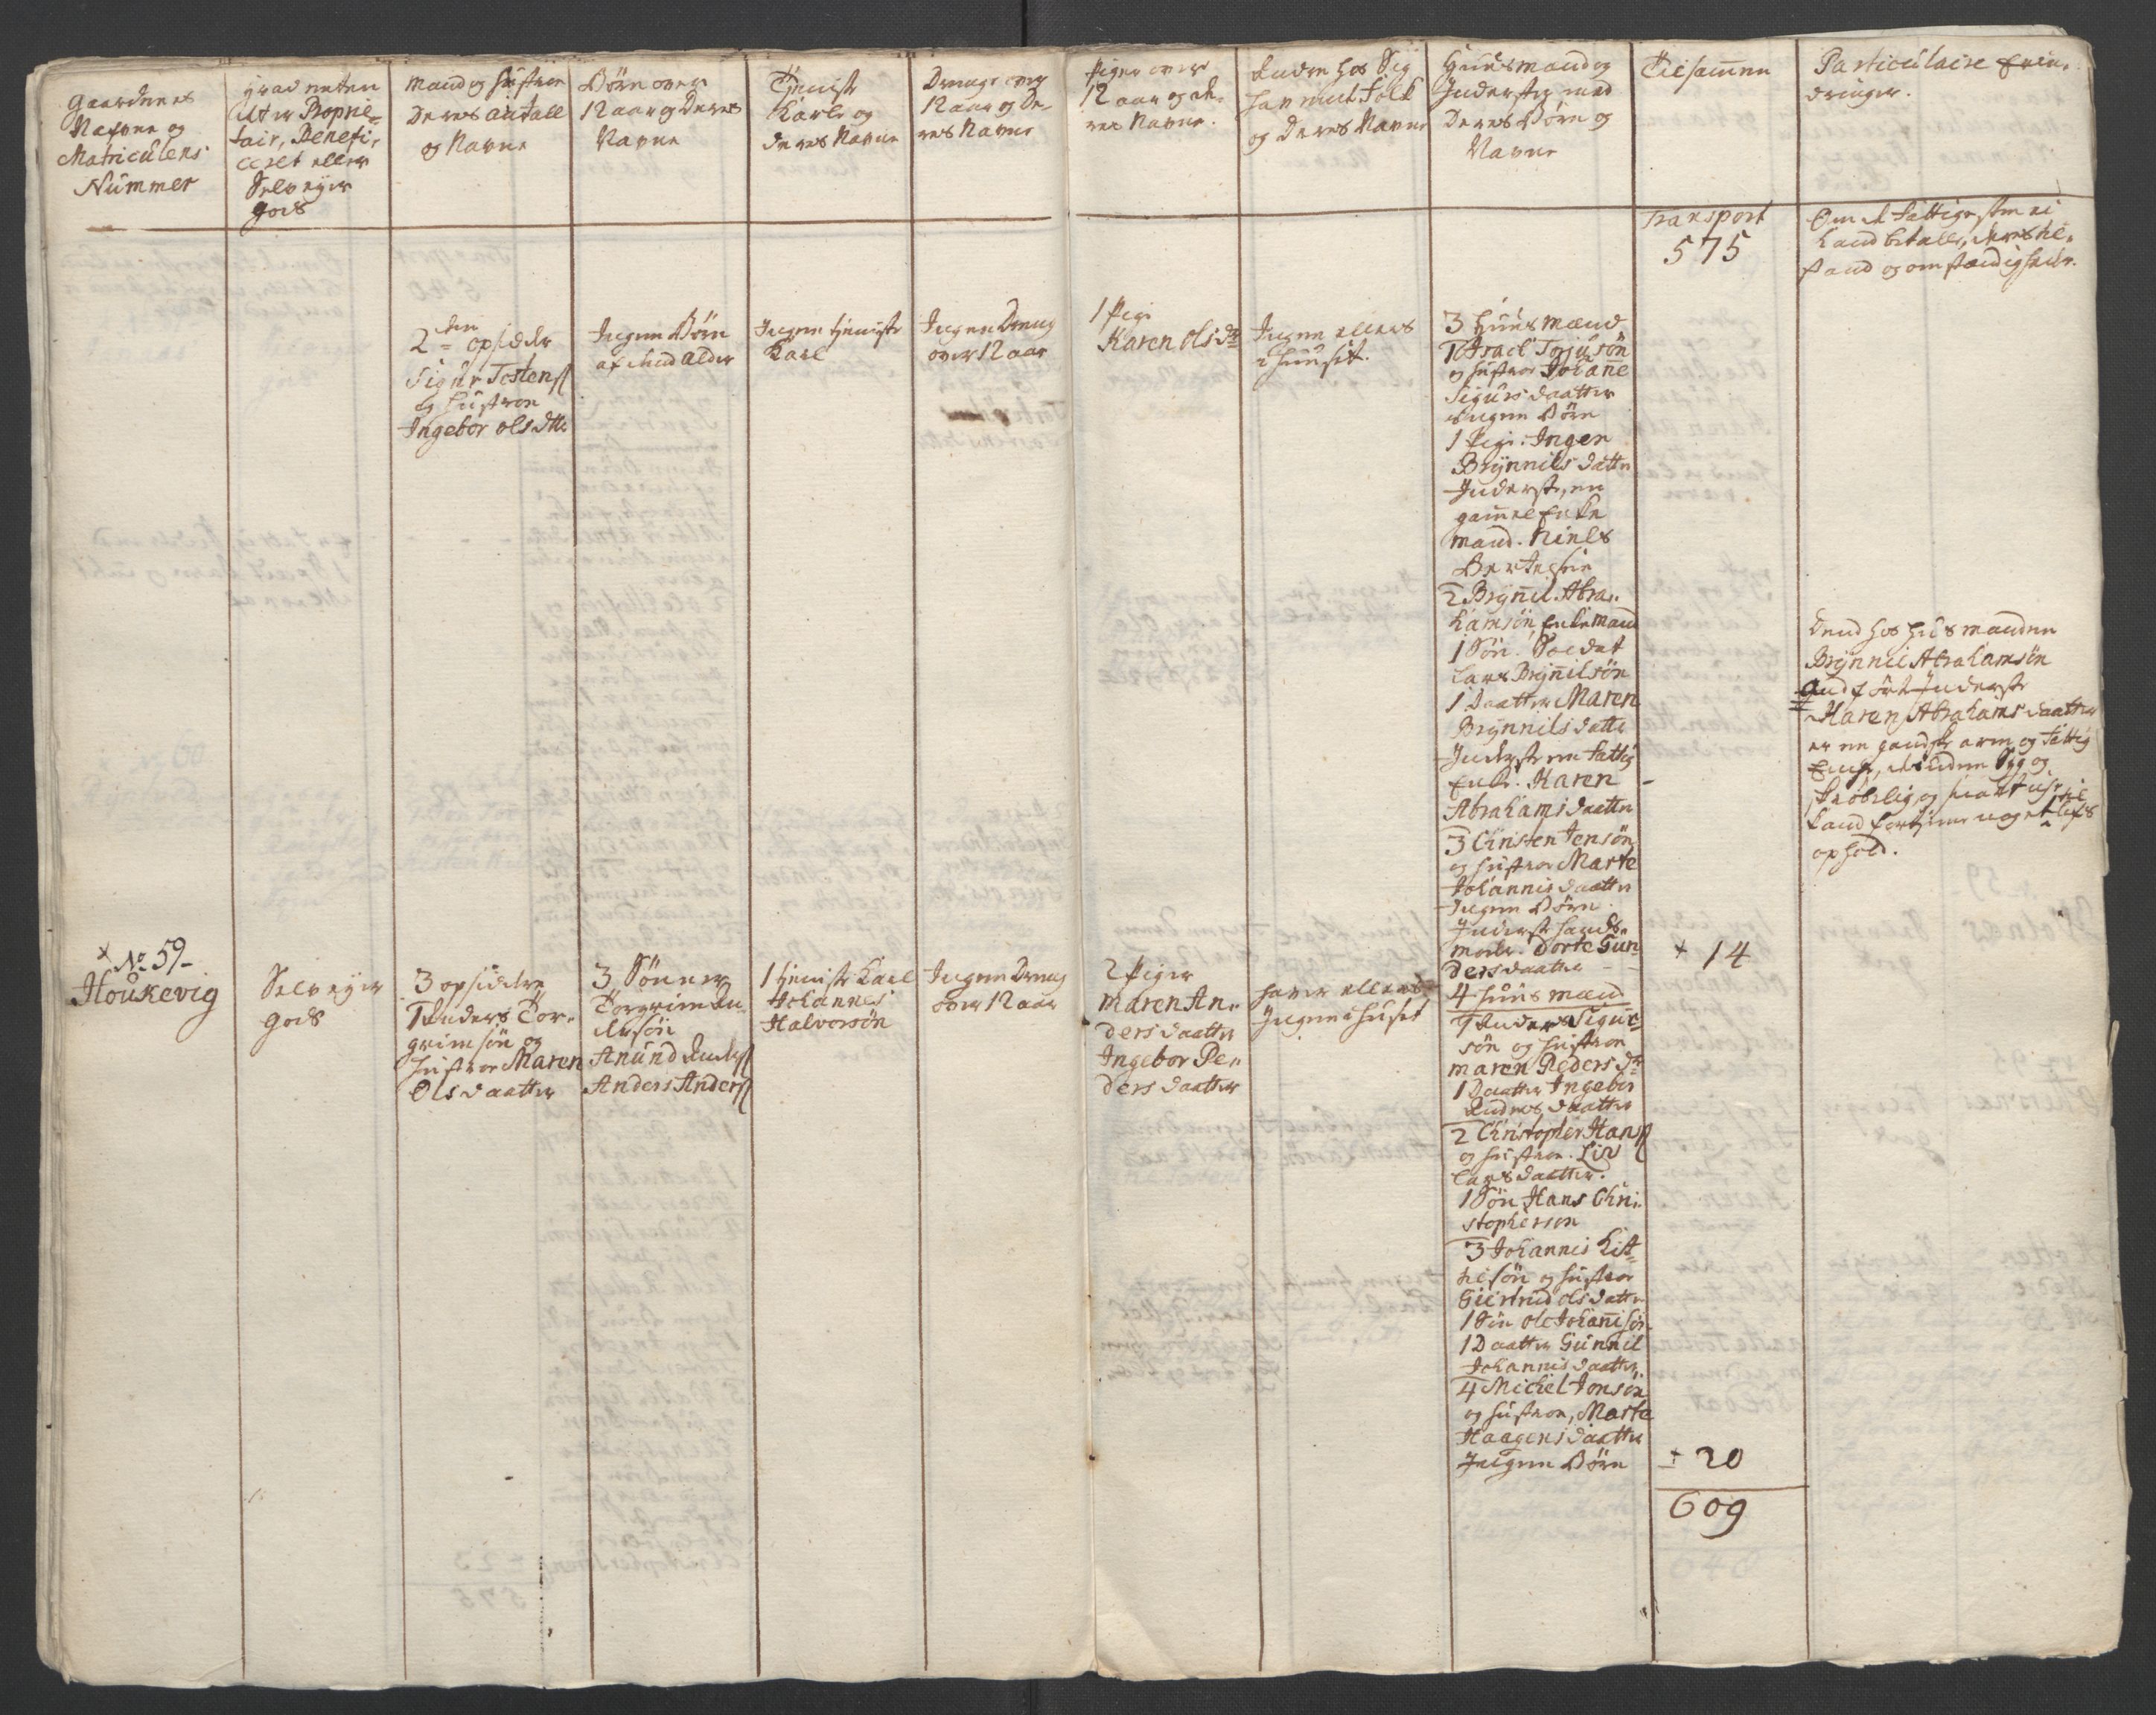 Gaardenes
Nafne og
Matriculens
Nummer
hvad enten
det er Proprie-
tair, Benefi-
ceret eller
Selveyer
gods
Mand og Hustroe
Deres antall
og Navne
Børn over
12 aar og Deres
Navne
Tieniste
Karle og
deres Navne
Drenge over
12 aar og De-
res Navne
Piger over
12 aar og de-
res Navne.
Andre hos Sig
havende Folk
og deres Navne
Huusmænd og
Inderster med
Deres Børn og
Navne
Tilsammen
Particulaire Erin-
dringer.
Transport
575
Om de Fattigste ei
kand betale, deres til-
stand og omstændigheder.
2den opsidder
Sigur Tostens
og Hustroe
Ingebor Olsdttr
Ingen Børn
af med alder
Ingen tieniste
Karl
Ingen Dreng
over 12 aar
1 Pige
Karen Olsdr
Ingen ellers
i Huuset.
3 Huusmænd
1 Israel Torjusøn
og Hustroe Joeane
Sigursdaatter
Ingen Børn
1 Pige: Ingen
Brynnilsdatter
Inderste, en
gammel Enke
mand. Niels
Bertelsøn
2 Brynnil Abra-
hamsøn Enkemand
1 Søn. Soldat
Lars Brynnilsøn
1 Daatter Maren
Brynnilsdatter
Inderste en fattig
Enke. Karen
Abrahamsdaatter
3 Christen Jensøn
og Hustroe Marte
Johannisdaatter
Ingen Børn.
Inderste hands
moder. Dorte Gun-
dersdaatter
+ 14
Den hos Huusmanden
Brynnil Abrahamsøn
andførte Inderste
Karen Abrahamsdaatter
er en gandske arm og fattig
Enke, desuden Syg og
skrøbelig og snart ushel
kand fortiene noget til Lifs
ophold.
+ No 59-
Houkevig
Selveyer
gods
3 opsiddere
1 Anders Tor-
grimsøn og
Hustroe Maren
Olsdaatter
3 Sønner
Torgrim An-
dersøn
Anund Anders
Anders Anders
1 tieniste Karl
Johannes
Halvorsøn
Ingen Dreng
over 12 aar
2 Piger
Maren An-
dersdaatter
Ingebor Pe-
dersdaatter
haver ellers
Ingen i Huset
4 Huusmænd
1 Anders Sigur-
søn og Hustroe
Maren Pedersdr
1 Daatter Ingebor
Andersdaatter
2 Christopher Hans
og Hustroe. Liv
Larsdaatter.
1 Søn Hans Chri-
stophersøn
3 Johannis Kit-
tilsøn og Hustroe
Giertrud Olsdatter
1 Søn Ole Johannisøn
1 Daatter Gunnil
Johannisdaatter
4 Michel Jonsøn
og Hustroe, Marte
Haagensdaatter
Ingen Børn
+ 20
609